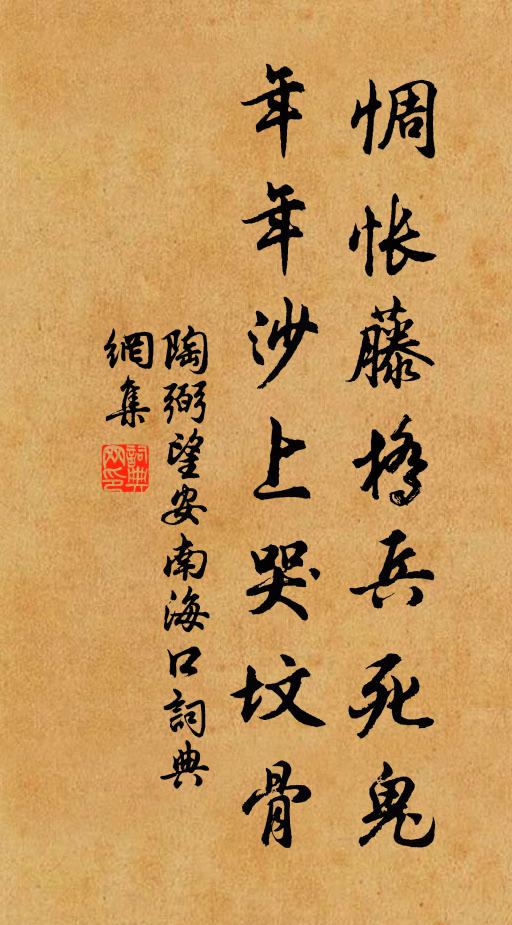 惆怅藤橋兵死鬼
年年沙上哭坟骨
陶弼望安南海口詞典
網集
詞典
网印